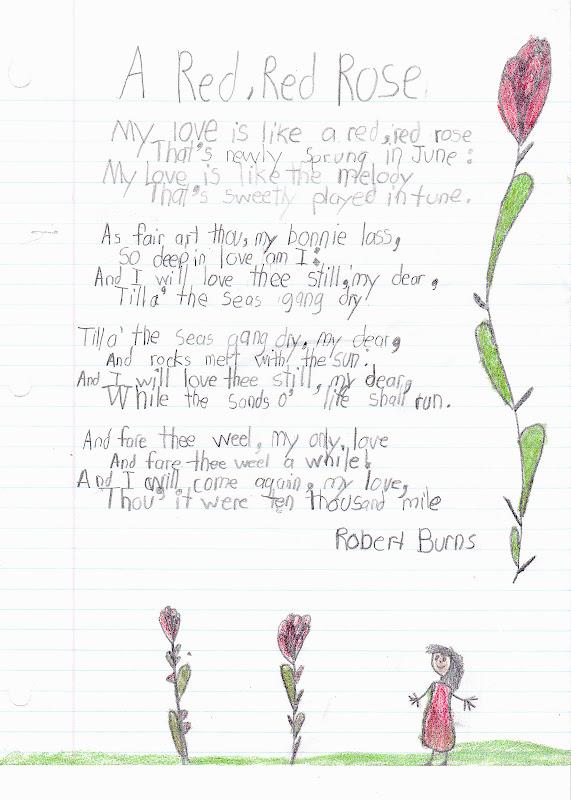 A Red, Red Rose
My love is like a red, red rose
That's newly sprung in June:
My Love is like the melody
That's sweetly played in tune.
As fair art thou, my bonnie lass,
So deep in love am I:
And I will love thee still, my dear,
Till a' the seas gang dry
Till a' the seas gang dry, my dear,
And rocks melt with the sun:
And I will love thee still, my dear,
While the sands o' life shall run.
And fare thee weel, my only love
And fare thee weel a while!
And I will come again, my love,
Thou' it were ten thousand mile
Robert Burns